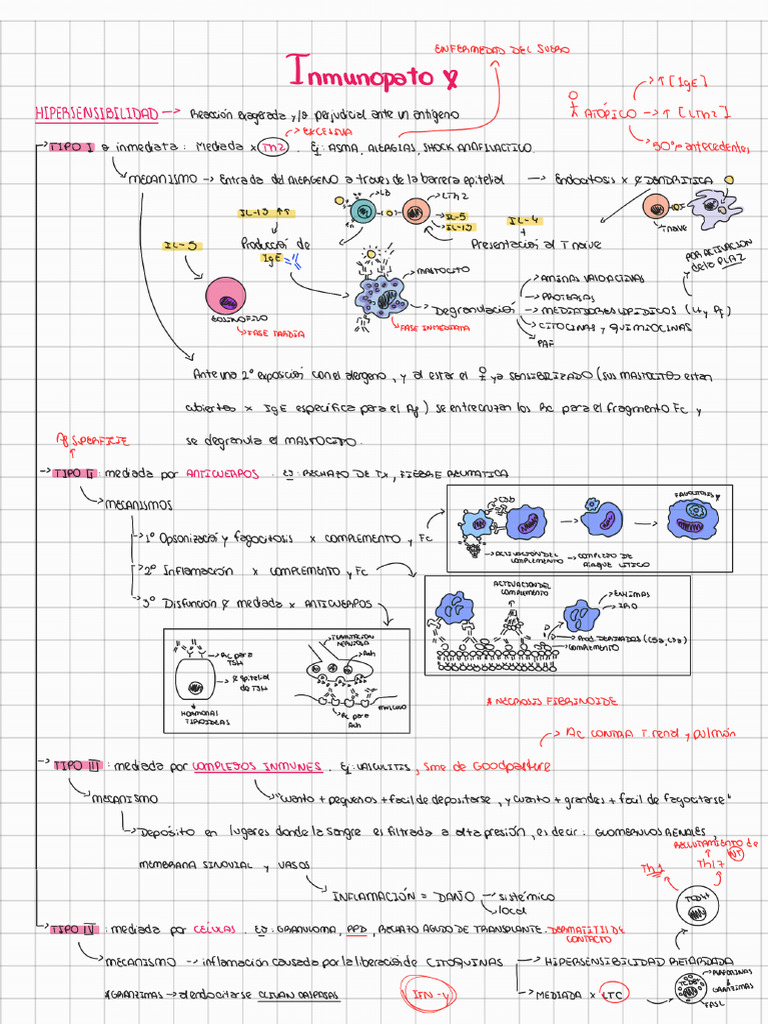 ENFERMEDAD DEL SUERO
Inmunopato
HIPERSENSIBILIDAD → Reacción exagerada y/o perjudicial ante un antígeno
ATÓPICO
→ ↑ [IgE]
→ ↑ [LTh2]
→ 50% antecedentes
EXCESIVA
TIPO I o inmediata: Mediada x Th2. Ej: ASMA, ALERGIAS, SHOCK ANAFILACTICO.
MECANISMO → Entrada del ALERGENO a traves de la barrera epitelial → Endocitosis x DENDRITICA
LB
LTh2
IL-13 ↑↑
IL-5
IL-13
IL-4
+
T NAIVE
IL-5
Producción de
IgE
Presentación al T naive
MASTOCITO
EOSINOFILO
FASE TARDIA
FASE INMEDIATA
Degranulación
AMINAS VASOACTIVAS
PROTEASAS
MEDIADORES LIPIDICOS (Lt y Pg)
CITOCINAS Y QUIMIOCINAS
PAF
POR ACTIVACION
de la PLA2
Ante una 2° exposición con el alergeno, y al estar el ya SENSIBILIZADO (sus MASTOCITOS estan
cubiertos x IgE especifica para el Ag) se entrecruzan los Ac para el fragmento Fc y
se degranula el MASTOCITO.
Ag SUPERFICIE
TIPO II: mediada por ANTICUERPOS. EJ: RECHAZO DE TX, FIEBRE REUMATICA
MECANISMOS
1° Opsonización y fagocitosis x COMPLEMENTO y Fc
2° Inflamación x COMPLEMENTO y Fc
3° Disfunción mediada x ANTICUERPOS
C3b
FAGOCITOSIS
ACTIVACION DEL
COMPLEMENTO → COMPLEJO DE
ATAQUE LITICO
ACTIVACION DEL
COMPLEMENTO
ENZIMAS
Prod. DERIVADOS (C5a, C3a)
COMPLEMENTO
Ac para
TSH
epitelial
de TSH
HORMONAS
TIROIDEAS
NERVIOSA
Ach
MUSCULO
Ac para
Ach
* NECROSIS FIBRINOIDE
Ac CONTRA T. renal y pulmón
TIPO III: mediada por COMPLEJOS INMUNES. Ej: VASCULITIS, Sme de Goodpasture
MECANISMO
"cuanto + pequeños + facil de depositarse, y cuanto + grandes + facil de fagocitarse"
Depósito en lugares donde la sangre es filtrada a alta presión, es decir: GLOMERULOS RENALES,
MEMBRANA SINOVIAL y VASOS
INFLAMACIÓN = DAÑO → sistémico
local
RECLUTAMIENTO de
NT
Th1
Th17
TCD4+
TIPO IV: mediada por CELULAS. EJ: GRANULOMA, PPD, RECHAZO AGUDO DE TRANSPLANTE. DERMATITIS DE
CONTACTO
MECANISMO → inflamación causada por la liberación de CITOQUINAS → HIPERSENSIBILIDAD RETARDADA
→ MEDIADA x LTC
*GRANZIMAS → al endocitarse CLIVAN CASPASAS
IFN-γ
TCD8+
PERFORINAS
y
GRANZIMAS
FASL